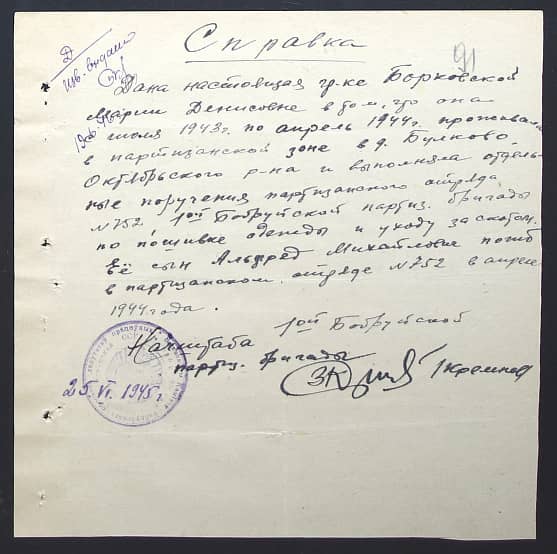 91
Д
изв. выдано
Справка
Дана настоящая гр-ке Борковской
Марии Денисовне в том, что она
с июля 1943г. по апрель 1944г. проживала
в партизанской зоне в д. Булково,
Октябрьского р-на и выполняла отдель-
ные поручения партизанского отряда
N752 1ой Бобруйской партиз. бригады
по пошивке одежды и уходу за скотом.
Её сын Альфред Михайлович погиб
в партизанском отряде N752 в апреле
1944 года.
Начштаба 1ой Бобруйской
партиз. бригады
25/VI. 1945г.